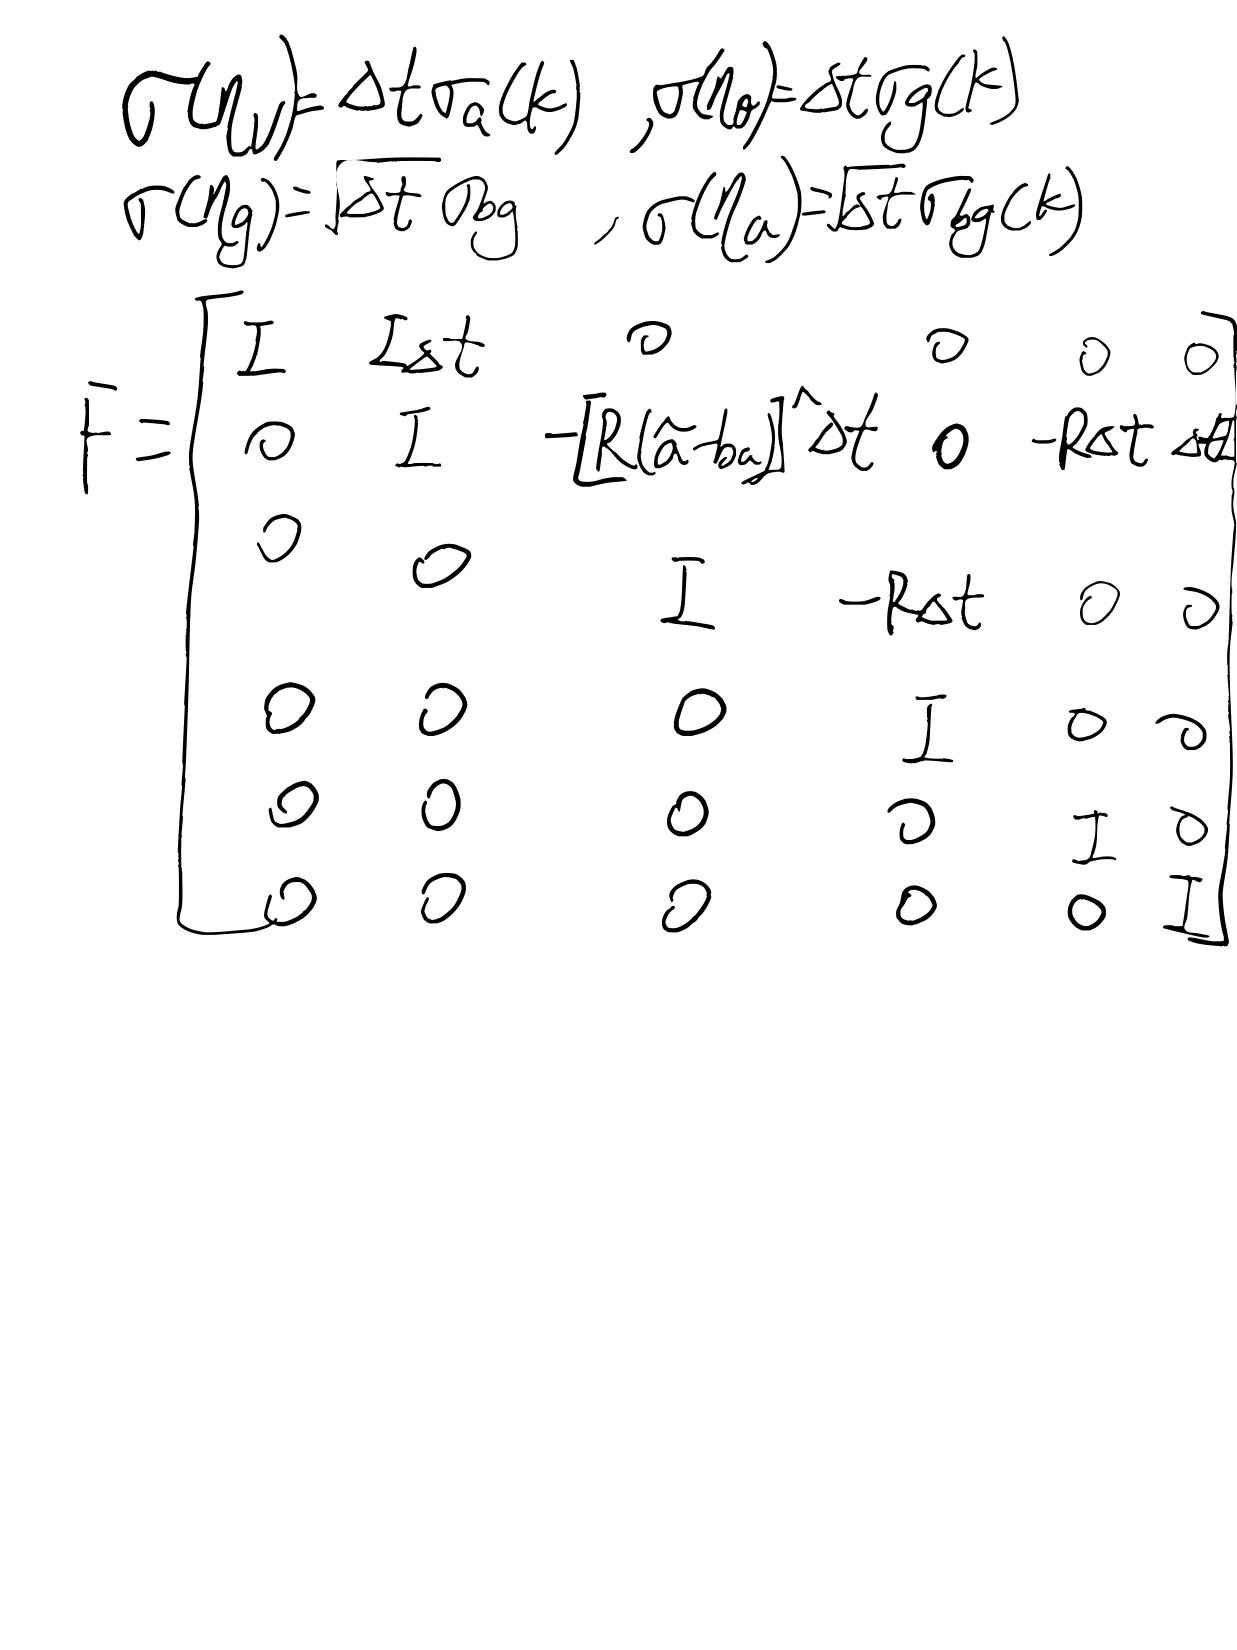 σ(η_v)=Δtσ_a(k) ,σ(η_θ)=Δtσ_g(k)
σ(η_g)=√Δt σ_bg , σ(η_a)=√Δt σ_bg(k)
F = [ I IΔt 0 0 0 0
0 I -[R(ã-b_a)]^Δt 0 -RΔt ΔtI
0 0 I -RΔt 0 0
0 0 0 I 0 0
0 0 0 0 I 0
0 0 0 0 0 I ]